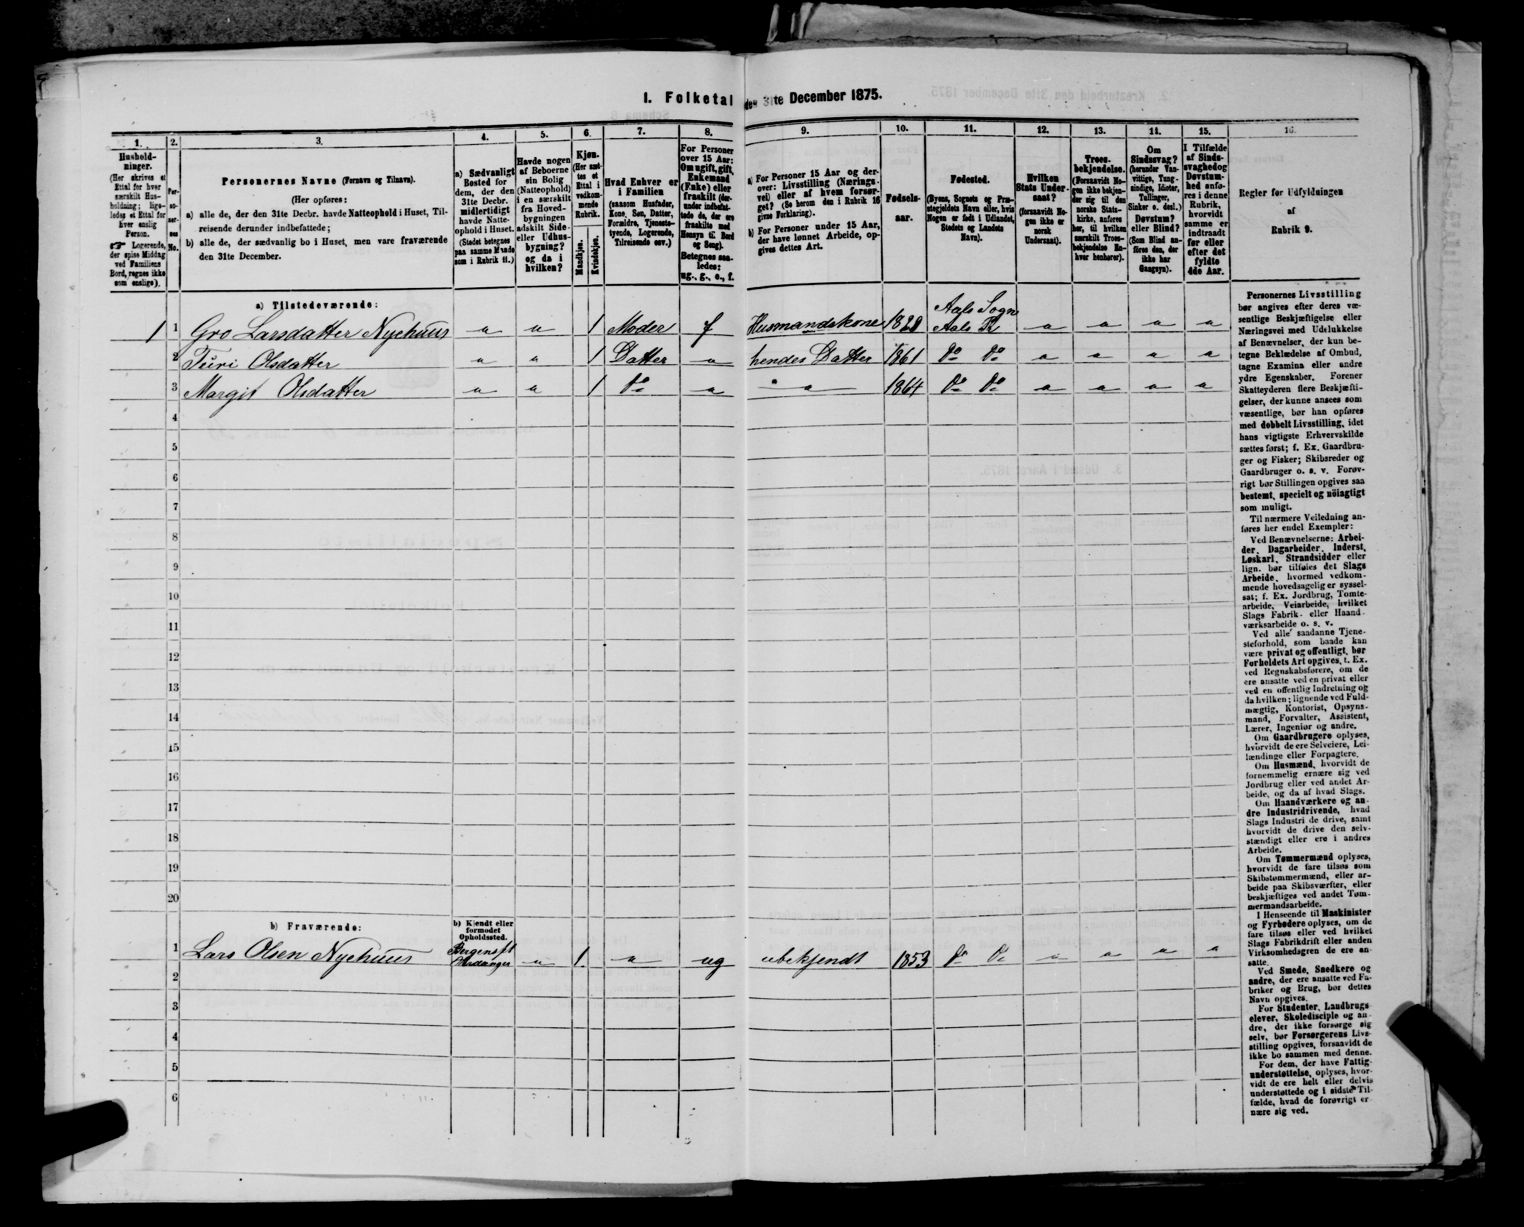 I. Folketal den 31te December 1875.
1. 2. 3. 4. 5. 6. 7. 8. 9. 10. 11. 12. 13. 14. 15. 16.
Hushold-
ninger.
(Her skrives et
Ettal for hver
særskilt Hus-
holdning; lige-
ledes et Ettal for
hver enslig
Person.
☞ Logerende,
der spise Middag
ved Familiens
Bord, regnes ikke
som enslige).
Per-
so-
ner-
nes
No.
Personernes Navne (Fornavn og Tilnavn).
(Her opføres:
a) alle de, der den 31te Decbr. havde Natteophold i Huset, Til-
reisende derunder indbefattede;
b) alle de, der sædvanlig bo i Huset, men vare fraværende
den 31te December.
a) Sædvanligt
Bosted for
dem, der den
31te Decbr.
midlertidigt
havde Natte-
ophold i Huset.
(Stedet betegnes
paa samme Maade
som i Rubrik 11.)
Havde nogen
af Beboerne
sin Bolig
(Natteophold)
i en særskilt
fra Hoved-
bygningen
adskilt Side-
eller Udhus-
bygning?
og da i
hvilken?
Kjøn.
(Her sæt-
tes et
Ettal i
vedkom-
mende
Rubrik.)
Mandkjøn.
Kvindekjøn.
Hvad Enhver er
i Familien
(saasom Husfader,
Kone, Søn, Datter,
Forældre, Tjeneste-
tyende, Logerende,
Tilreisende osv.)
For Personer
over 15 Aar:
Om ugift, gift,
Enkemand
(Enke) eller
fraskilt (der-
under indbefat-
tede de, der ere
fraskilte med
Hensyn til Bord
og Seng).
Betegnes saa-
ledes:
ug., g., e., f.
a) For Personer 15 Aar og der-
over: Livsstilling (Nærings-
vei) eller af hvem forsør-
get? (Se herom den i Rubrik 16
givne Forklaring).
b) For Personer under 15 Aar,
der have lønnet Arbeide, op-
gives dettes Art.
Fødsels-
aar.
Fødested.
(Byens, Sognets og Præ-
stegjeldets Navn eller, hvis
Nogen er født i Udlandet,
Stedets og Landets
Navn).
Hvilken
Stats Under-
saat?
(forsaavidt No-
gen ikke er
norsk
Undersaat).
Troes-
bekjendelse.
(Forsaavidt No-
gen ikke bekjen-
der sig til den
norske Stats-
kirke, anføres
her, til hvilken
særskilt Troes-
bekjendelse En-
hver henhører).
Om
Sindssvag?
(herunder Van-
vittige, Tung-
sindige, Idioter,
Tullinger,
Sinker o. desl.)
Døvstum?
eller Blind?
(Som Blind an-
føres den, der
ikke har
Gangsyn).
I Tilfælde
af Sinds-
svaghed og
Døvstum-
hed anfø-
res i denne
Rubrik,
hvorvidt
samme er
indtraadt
før eller
efter det
fyldte
4de Aar.
Regler for Udfyldningen
af
Rubrik 9.
a) Tilstedeværende:
1 1 Gro Larsdatter Nyehuus 1 Moder f Husmandskone 1828 Aals Sogn Aals
2 Turi Olsdatter 1 Datter hendes Datter 1861 do do
3 Margit Olsdatter 1 do 1864 do do
4
5
6
7
8
9
10
11
12
13
14
15
16
17
18
19
20
b) Fraværende:
b) Kjendt eller
formodet
Opholdssted.
1 Lars Olsen Nyehuus 1. ug ubekjendt 1853 do do
2
3
4
5
6
Personernes Livsstilling
bør angives efter deres væ-
sentlige Beskjæftigelse eller
Næringsvei med Udelukkelse
af Benævnelser, der kun be-
tegne Beklædelse af Ombud,
tagne Examina eller andre
ydre Egenskaber. Forener
Skatteyderen flere Beskjæfti-
gelser, der kunne ansees som
væsentlige, bør han opføres
med dobbelt Livsstilling, idet
hans vigtigste Erhvervskilde
sættes først; f. Ex. Gaardbru-
ger og Fisker; Skibsreder og
Gaardbruger o. s. v. Forøv-
rigt bør Stillingen opgives saa
bestemt, specielt og nöiagtigt
som muligt.
Til nærmere Veiledning an-
føres her endel Exempler:
Ved Benævnelserne: Arbei-
der, Dagarbeider, Inderst,
Løskarl, Strandsidder eller
lign. bør tilføies det Slags
Arbeide, hvormed vedkom-
mende hovedsagelig er syssel-
sat; f. Ex. Jordbrug, Tomte-
arbeide, Veiarbeide, hvilket
Slags Fabrik- eller Haand-
værksarbeide o. s. v.
Ved alle saadanne Tjene-
steforhold, som baade kan
være privat og offentligt, bør
Forholdets Art opgives, t. Ex.
ved Regnskabsførere, om de
ere ansatte ved en privat eller
ved en offentlig Indretning og
da hvilken; lignende ved Fuld-
mægtig, Kontorist, Opsyns-
mand, Forvalter, Assistent,
Lærer, Ingeniør og andre.
Om Gaardbrugere oplyses,
hvorvidt de ere Selveiere, Lei-
lændinge eller Forpagtere.
Om Husmænd, hvorvidt de
fornemmelig ernære sig ved
Jordbrug eller ved andet Ar-
beide, og da af hvad Slags.
Om Haandværkere og an-
dre Industridrivende, hvad
Slags Industri de drive, samt
hvorvidt de drive den selv-
stændigt eller ere i andres
Arbeide.
Om Tømmermænd oplyses,
hvorvidt de fare tilsøs som
Skibstømmermænd, eller ar-
beide paa Skibsværfter, eller
beskjæftiges ved andet Tøm-
mermandsarbeide.
I Henseende til Maskinister
og Fyrbødere oplyses, om de
fare tilsøs eller ved hvilket
Slags Fabrikdrift eller anden
Virksomhedsgren de ere an-
satte.
Ved Smede, Snedkere og
andre, der ere ansatte ved Fa-
briker og Brug, bør dettes
Navn opgives.
For Studenter, Landbrugs-
elever, Skoledisciple og an-
dre, der ikke forsørge sig
selv, bør Forsørgerens Livs-
stilling opgives, forsaavidt de
ikke bo sammen med denne.
For dem, der have Fattig-
understøttelse, oplyses, hvor-
vidt de ere helt eller delvis
understøttede og i sidste Til-
fælde, hvad de forøvrigt er-
nære sig ved.